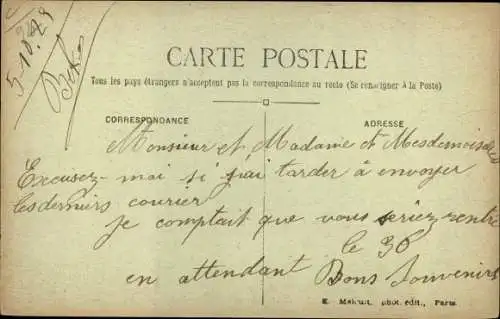 5-10-29
CARTE POSTALE
Tous les pays étrangers n'acceptent pas la correspondance au recto (Se renseigner à la Poste)
CORRESPONDANCE ADRESSE
Monsieur et Madame et Mesdemoiselles
Excusez-moi si j'ai tarder à envoyer
les derniers courier
je comptait que vous seriez rentre
le 30
en attendant Bons Souvenirs
phot. édit., Paris.